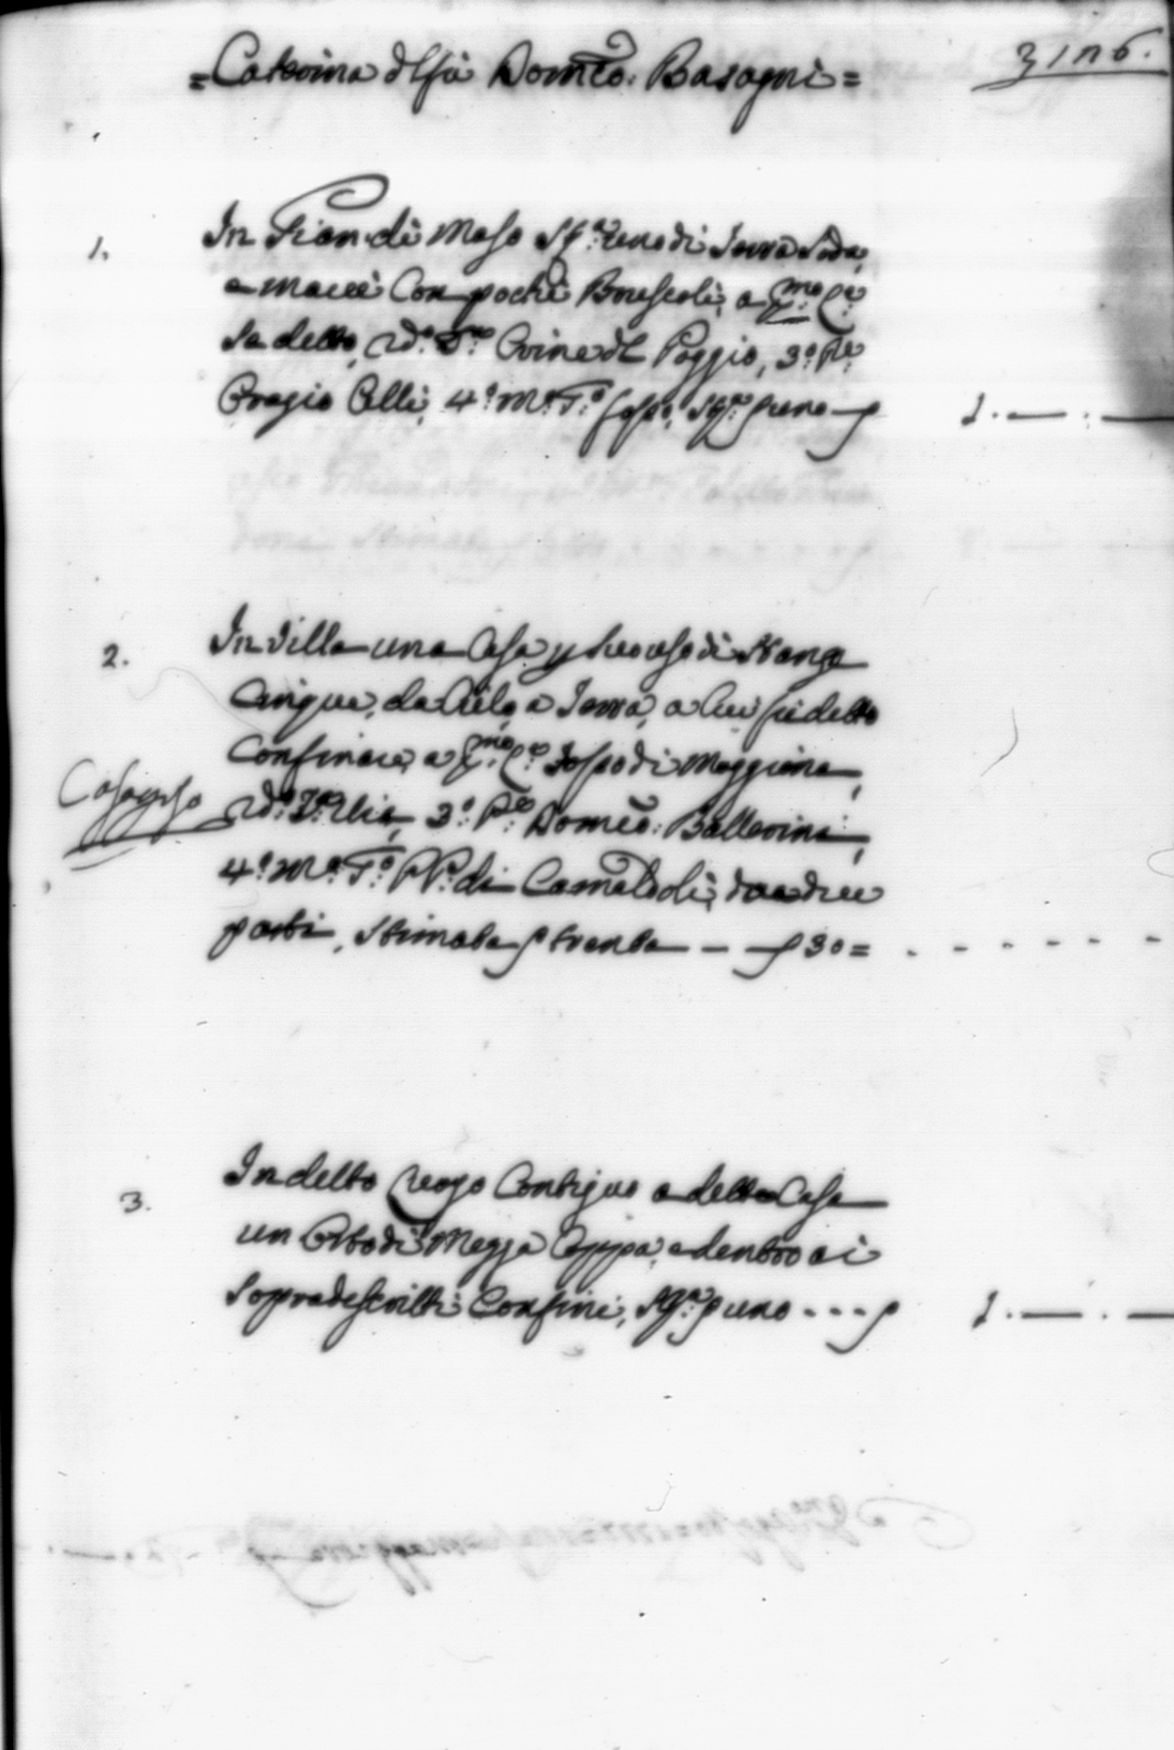 =Caterina d'l fù Domco: Basagni=
1. In Pian di Maso St.a uno di Terra Soda,
a macie Con pochi Bruscoli, a P.mo C.e
Sa detto, 2do. S.re Crine del Poggio, 3.o P.te
Orazio Celli, 4.o M.o T.o Sasso, St.a p uno p 1. — . —
2. In Villa una Casa p suo uso di Stanze
Cinque, da Cielo a Terra, a Cui fù detto
Confinare, a P.mo C.e Sasso di Maggiona,
Casa p uso
2do. Via, 3.o P.te Domco: Ballerini,
4.o M.o T.o PP. di Camaldoli, da due
parti, Stimata p trenta — — p 30 =
3. In detto Luogo Contiguo a detta Casa
un Orto di Mezza Coppa, e dentro ai
Sopradescritti Confini, St.a p uno - - - p 1. — . —